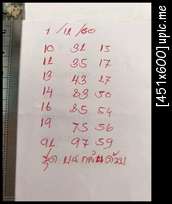 1 /12 /60
10 32 15
12 35 17
13 43 27
14 83 50
16 85 54
19 75 56
92 97 59
[451x600] upic.me